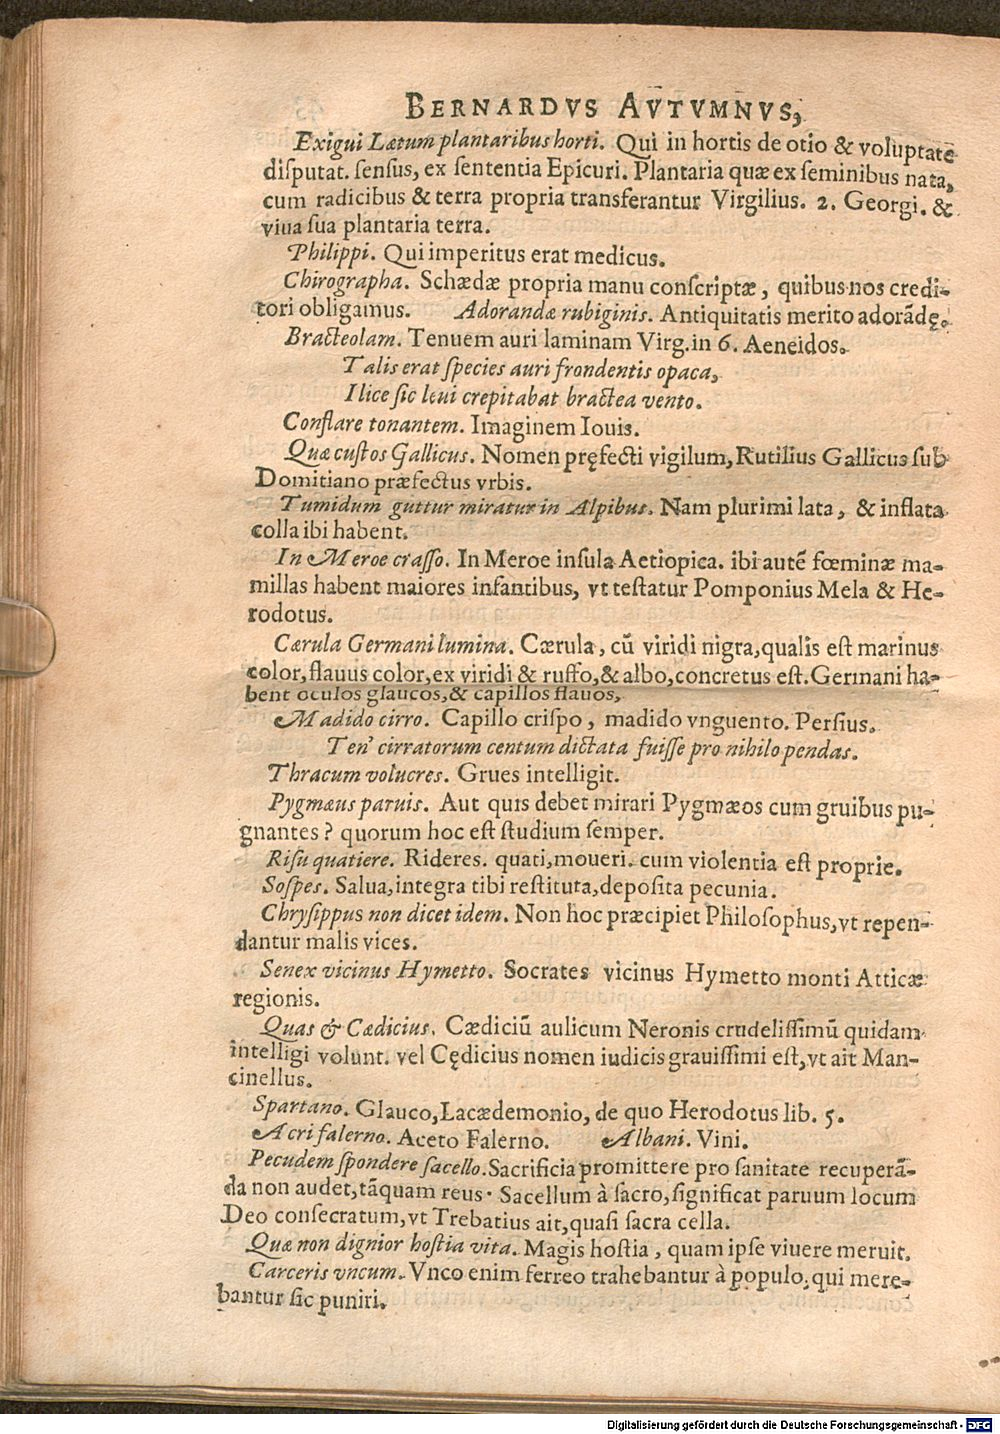 BERNARDVS AVTVMNVS,
Exigui Lætum plantaribus horti. Qui in hortis de otio & voluptate
disputat. sensus, ex sententia Epicuri. Plantaria quæ ex seminibus nata,
cum radicibus & terra propria transferantur Virgilius. 2. Georgi. &
viua sua plantaria terra.
Philippi. Qui imperitus erat medicus.
Chirographa. Schædæ propria manu conscriptæ, quibus nos credi-
tori obligamus. Adorandæ rubiginis. Antiquitatis merito adorādę.
Bracteolam. Tenuem auri laminam Virg. in 6. Aeneidos.
Talis erat species auri frondentis opaca,
Ilice sic leui crepitabat bractea vento.
Conflare tonantem. Imaginem Iouis.
Quæ custos Gallicus. Nomen pręfecti vigilum, Rutilius Gallicus sub
Domitiano præfectus vrbis.
Tumidum guttur miratur in Alpibus. Nam plurimi lata, & inflata
colla ibi habent.
In Meroe crasso. In Meroe insula Aetiopica. ibi autē fœminæ ma-
millas habent maiores infantibus, vt testatur Pomponius Mela & He-
rodotus.
Cærula Germani lumina. Cærula, cū viridi nigra, qualis est marinus
color, flauus color, ex viridi & ruffo, & albo, concretus est. Germani ha-
bent oculos glaucos, & capillos flauos,
Madido cirro. Capillo crispo, madido vnguento. Persius.
Ten' cirratorum centum dictata fuisse pro nihilo pendas.
Thracum volucres. Grues intelligit.
Pygmæus paruis. Aut quis debet mirari Pygmæos cum gruibus pu-
gnantes? quorum hoc est studium semper.
Risu quatiere. Rideres. quati, moueri. cum violentia est proprie.
Sospes. Salua, integra tibi restituta, deposita pecunia.
Chrysippus non dicet idem. Non hoc præcipiet Philosophus, vt repen-
dantur malis vices.
Senex vicinus Hymetto. Socrates vicinus Hymetto monti Atticæ
regionis.
Quas & Cædicius. Cædiciū aulicum Neronis crudelissimū quidam
intelligi volunt. vel Cędicius nomen iudicis grauissimi est, vt ait Man-
cinellus.
Spartano. Glauco, Lacædemonio, de quo Herodotus lib. 5.
Acri falerno. Aceto Falerno. Albani. Vini.
Pecudem spondere sacello. Sacrificia promittere pro sanitate recuperā-
da non audet, tāquam reus. Sacellum à sacro, significat paruum locum
Deo consecratum, vt Trebatius ait, quasi sacra cella.
Quæ non dignior hostia vita. Magis hostia, quam ipse viuere meruit.
Carceris vncum. Vnco enim ferreo trahebantur à populo, qui mere-
bantur sic puniri.
Digitalisierung gefördert durch die Deutsche Forschungsgemeinschaft - DFG